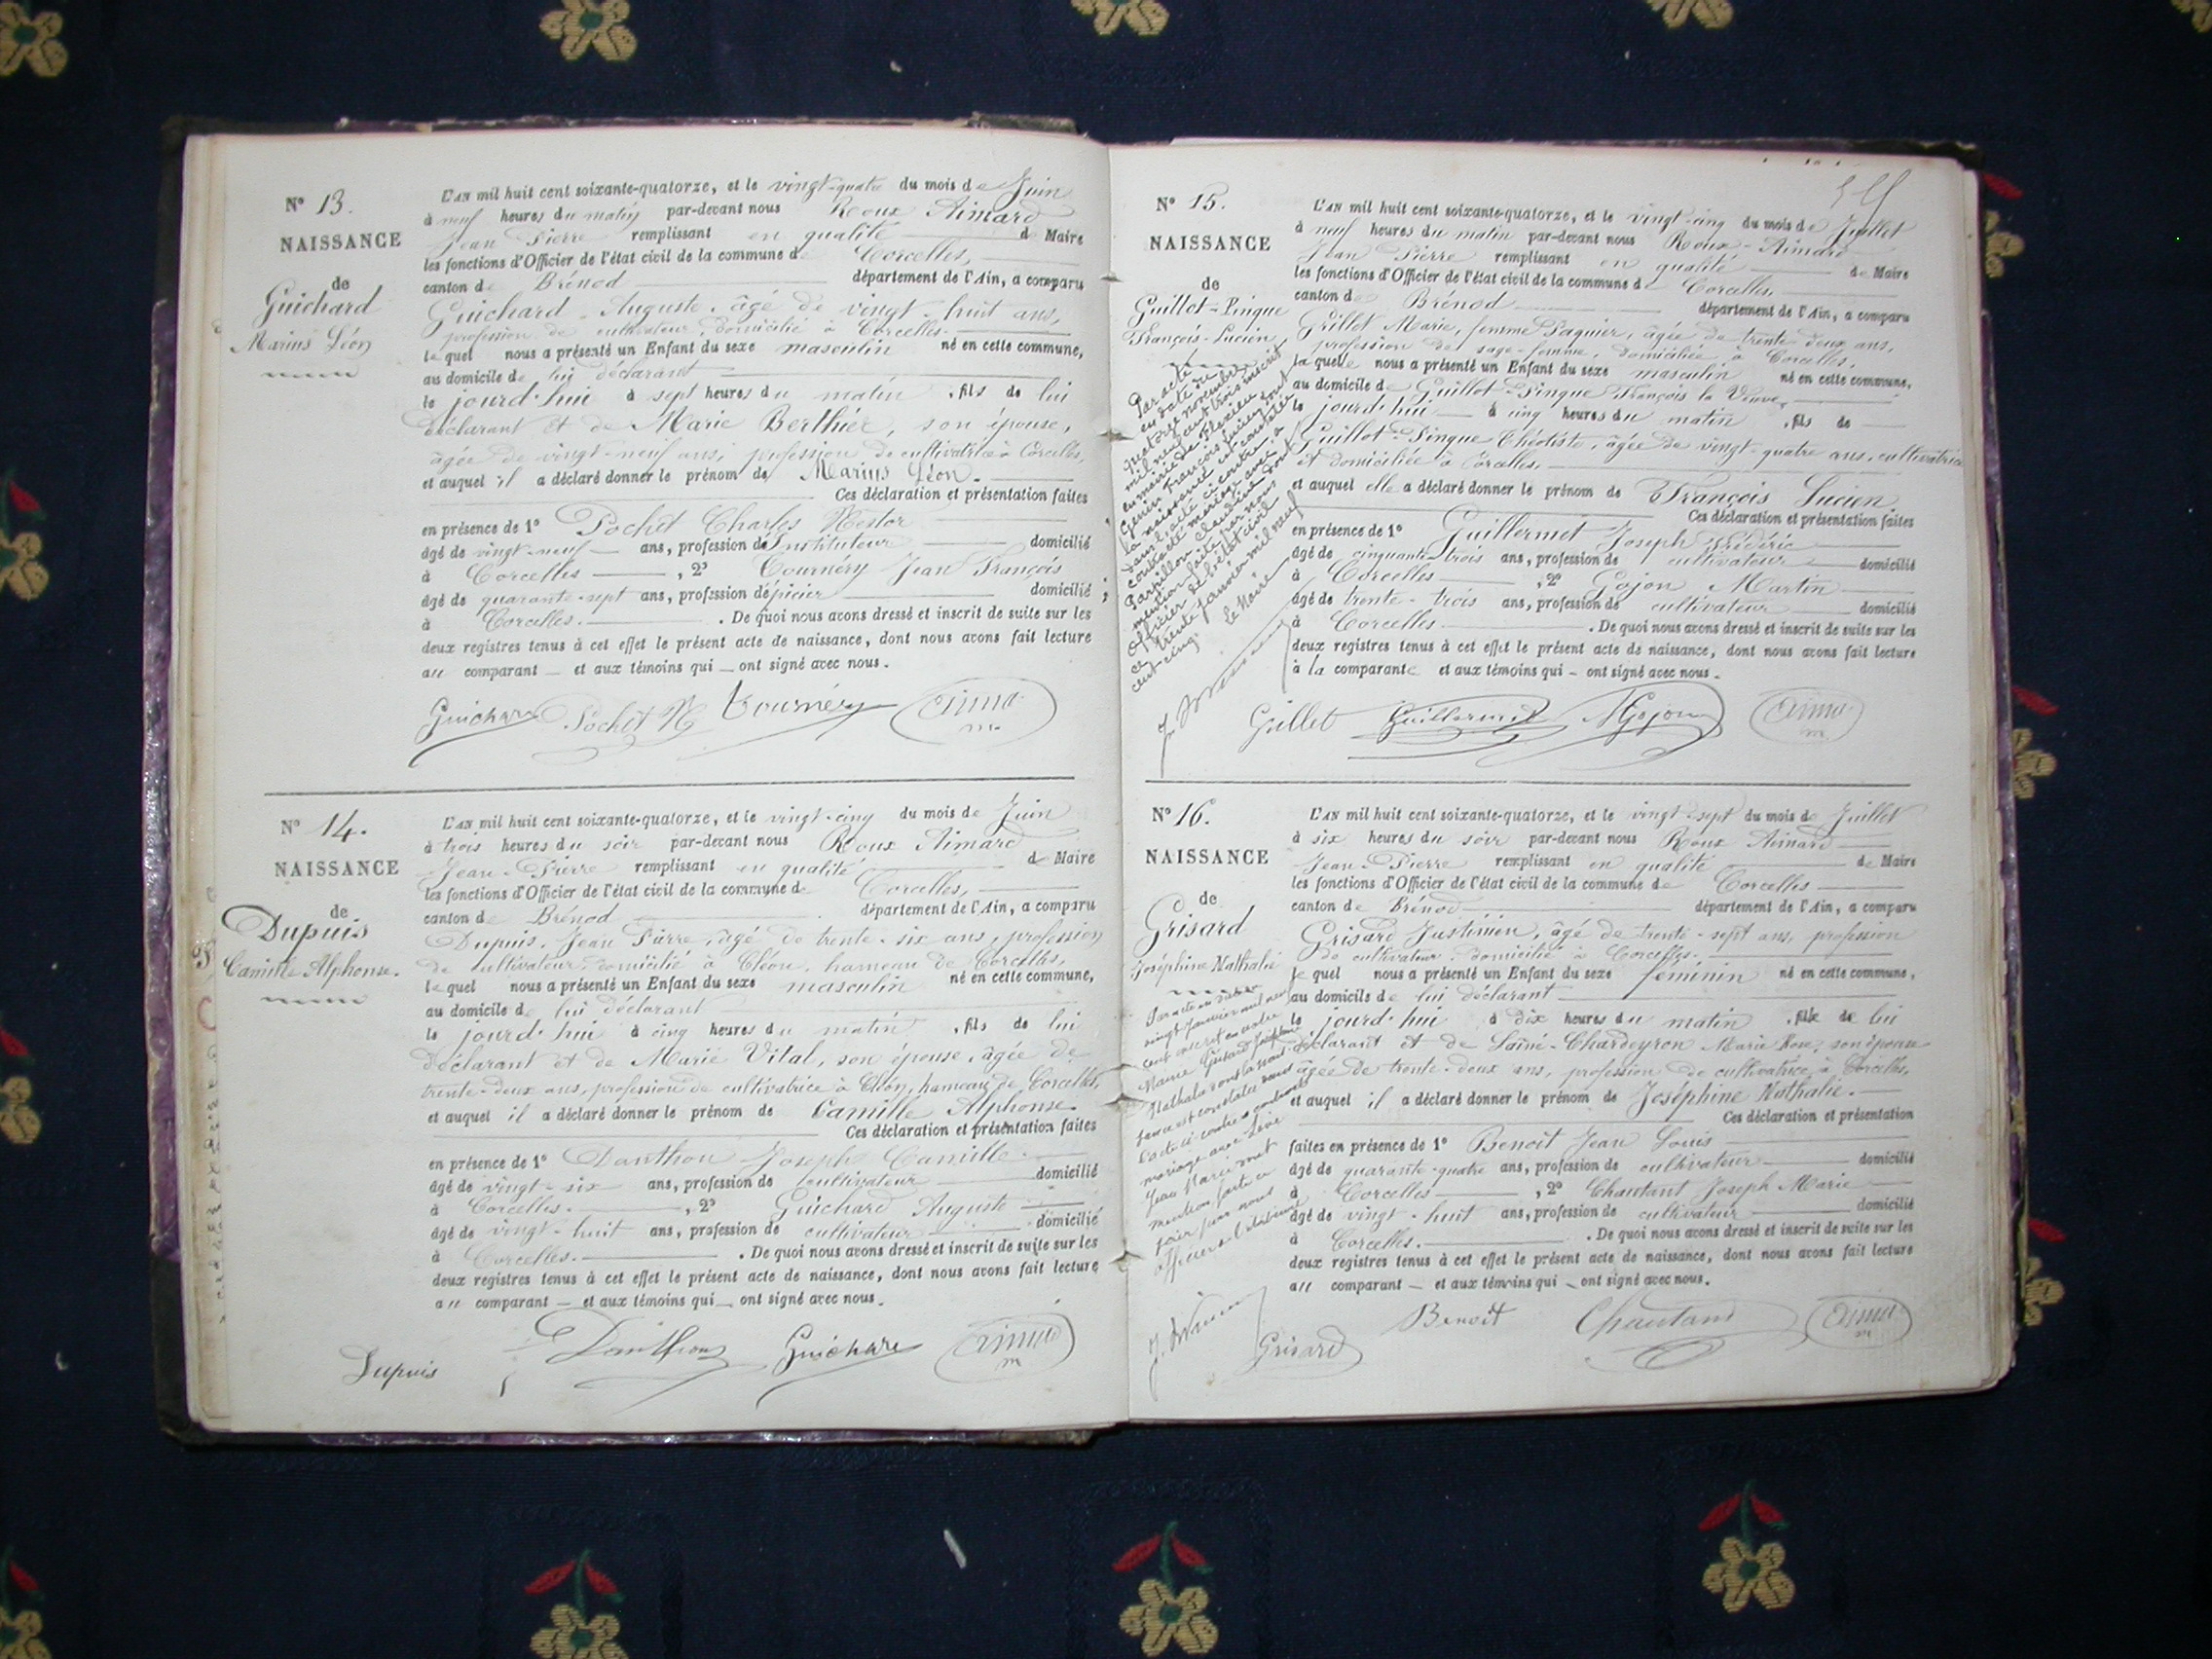 N° 13.
NAISSANCE
de
Guichard
Marius Léon
L'AN mil huit cent soixante-quatorze, et le vingt-quatre du mois de Juin
à neuf heures du matin par-devant nous Roux Aimard
Jean Pierre remplissant en qualité de Maire
les fonctions d'Officier de l'état civil de la commune de Corcelles,
canton de Brénod département de l'Ain, a comparu
Guichard Auguste, âgé de vingt-huit ans,
profession de cultivateur, domicilié à Corcelles
lequel nous a présenté un Enfant du sexe masculin né en cette commune,
au domicile de lui déclarant
le jourd'hui à sept heures du matin, fils de lui
déclarant et de Marie Berthier, son épouse,
âgée de vingt-neuf ans, profession de cultivatrice à Corcelles,
et auquel il a déclaré donner le prénom de Marius Léon.
Ces déclaration et présentation faites
en présence de 1° Pochet Charles Nestor
âgé de vingt-neuf ans, profession d'Instituteur domicilié
à Corcelles, 2° Tournéry Jean François
âgé de quarante-sept ans, profession d'épicier domicilié
à Corcelles. De quoi nous avons dressé et inscrit de suite sur les
deux registres tenus à cet effet le présent acte de naissance, dont nous avons fait lecture
au comparant et aux témoins qui ont signé avec nous.
Guichard Pochet N Tournéry Aimard m
N° 14.
NAISSANCE
de
Dupuis
Camille Alphonse.
L'AN mil huit cent soixante-quatorze, et le vingt-cinq du mois de Juin
à trois heures du soir par-devant nous Roux Aimard
Jean-Pierre remplissant en qualité de Maire
les fonctions d'Officier de l'état civil de la commune de Corcelles,
canton de Brénod département de l'Ain, a comparu
Dupuis, Jean Pierre, âgé de trente-six ans, profession
de cultivateur, domicilié à Cléon, hameau de Corcelles,
lequel nous a présenté un Enfant du sexe masculin né en cette commune,
au domicile de lui déclarant
le jourd'hui à cinq heures du matin, fils de lui
déclarant et de Marie Vital, son épouse, âgée de
trente-deux ans, profession de cultivatrice à Cléon, hameau de Corcelles,
et auquel il a déclaré donner le prénom de Camille Alphonse
Ces déclaration et présentation faites
en présence de 1° Danthon Joseph Camille
âgé de vingt-six ans, profession de cultivateur domicilié
à Corcelles, 2° Guichard Auguste
âgé de vingt-huit ans, profession de cultivateur domicilié
à Corcelles. De quoi nous avons dressé et inscrit de suite sur les
deux registres tenus à cet effet le présent acte de naissance, dont nous avons fait lecture
au comparant et aux témoins qui ont signé avec nous.
Dupuis Danthon Guichard Aimard m
N° 15.
NAISSANCE
de
Guillot-Pingue
François-Lucien
Par acte
en date du
quatorze novembre
mil neuf cent trois inscrit
en mairie de
François
la naissance est constatée
dans l'acte ci contre, a
contracté mariage avec
Papillon Claudine dont
mention faite par nous
officier de l'état civil
ce trente janvier mil neuf
cent cinq. Le Maire
L'AN mil huit cent soixante-quatorze, et le vingt-cinq du mois de Juillet
à neuf heures du matin par-devant nous Roux-Aimard
Jean Pierre remplissant en qualité de Maire
les fonctions d'Officier de l'état civil de la commune de Corcelles,
canton de Brénod département de l'Ain, a comparu
Grillet Marie, femme Paquier, âgée de trente deux ans,
profession de sage-femme, domiciliée à Corcelles,
laquelle nous a présenté un Enfant du sexe masculin né en cette commune,
au domicile de Guillot-Pingue François la Veuve,
le jourd'hui à cinq heures du matin, fils de
Guillot-Pingue Théotiste, âgée de vingt-quatre ans, cultivatrice
et domiciliée à Corcelles,
et auquel elle a déclaré donner le prénom de François Lucien
Ces déclaration et présentation faites
en présence de 1° Guillermet Joseph Frédéric
âgé de cinquante-trois ans, profession de cultivateur domicilié
à Corcelles, 2° Gojon Martin
âgé de trente-trois ans, profession de cultivateur domicilié
à Corcelles. De quoi nous avons dressé et inscrit de suite sur les
deux registres tenus à cet effet le présent acte de naissance, dont nous avons fait lecture
à la comparante et aux témoins qui ont signé avec nous.
Grillet Guillermet M Gojon Aimard m
N° 16.
NAISSANCE
de
Grisard
Joséphine Nathalie
Par acte en date du
vingt Janvier mil neuf
cent inscrit en cette
Mairie Grisard Joséphine
Nathalie dont la nais-
sance est constatée dans
l'acte ci-contre a contracté
mariage avec
mention faite ce
jour par nous
officier de l'état civil
L'AN mil huit cent soixante-quatorze, et le vingt-sept du mois de Juillet
à six heures du soir par-devant nous Roux Aimard
Jean-Pierre remplissant en qualité de Maire
les fonctions d'Officier de l'état civil de la commune de Corcelles
canton de Brénod département de l'Ain, a comparu
Grisard Justinien, âgé de trente-sept ans, profession
de cultivateur, domicilié à Corcelles.
lequel nous a présenté un Enfant du sexe féminin né en cette commune,
au domicile de lui déclarant
le jourd'hui à dix heures du matin, fille de lui
déclarant et de Lainé-Chardeyron Marie Rose, son épouse
âgée de trente-deux ans, profession de cultivatrice, à Corcelles,
et auquel il a déclaré donner le prénom de Joséphine Nathalie.
Ces déclaration et présentation
faites en présence de 1° Benoit Jean Louis
âgé de quarante-quatre ans, profession de cultivateur domicilié
à Corcelles, 2° Chautant Joseph Marie
âgé de vingt-huit ans, profession de cultivateur domicilié
à Corcelles. De quoi nous avons dressé et inscrit de suite sur les
deux registres tenus à cet effet le présent acte de naissance, dont nous avons fait lecture
au comparant et aux témoins qui ont signé avec nous.
Grisard Benoit Chautant Aimard m